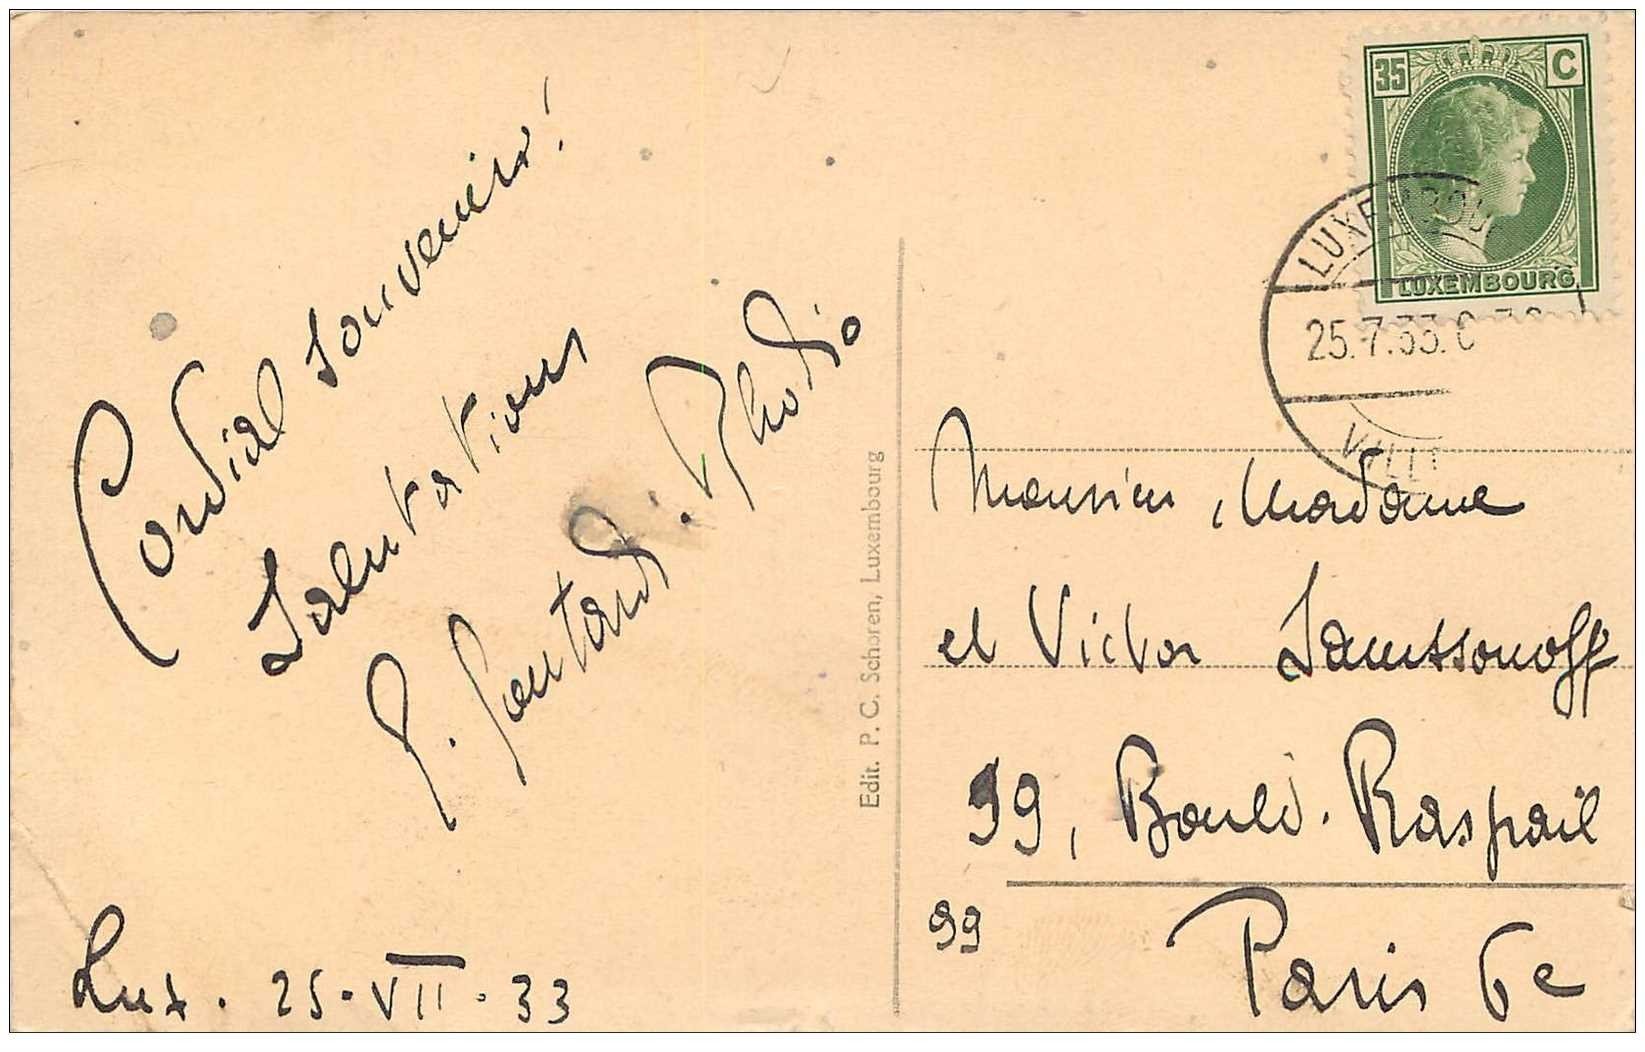 Cordial souvenir!
Salutations
35 C
LUXEMBOURG
LUXEMBOU
25.7.33.
VILL
Edit. P. C. Schoren, Luxembourg
Monsieur, Madame
et Victor
99, Boulv. Raspail
99
Paris 6e
Lux. 25.VII.33